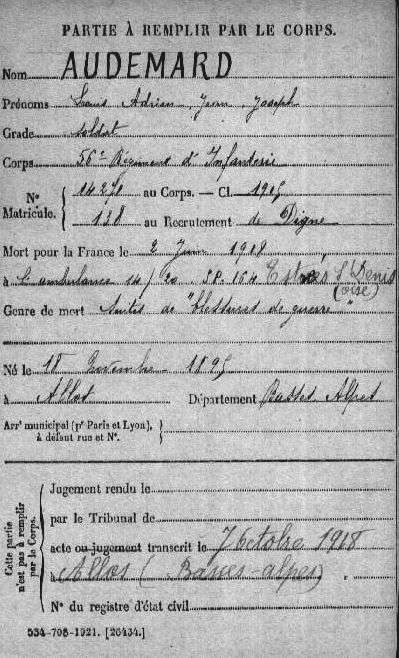 PARTIE À REMPLIR PAR LE CORPS.
Nom AUDEMARD
Prénoms Louis Adrien Jean Joseph
Grade soldat
Corps 56e Régiment d'Infanterie
N° Matricule. { 14270 au Corps. — Cl. 1915
138 au Recrutement de Digne
Mort pour la France le 2 Juin 1918
à l'ambulance 14/20 SP. 164 St Denis
(oise)
Genre de mort Suites de "blessures de guerre"
Né le 18 Novembre 1895
à Allos Département Basses Alpes
Arrt municipal (pr Paris et Lyon), à défaut rue et N°. }
Cette partie n'est pas à remplir par le Corps. {
Jugement rendu le
par le Tribunal de
acte ou jugement transcrit le 7 Octobre 1918
à Allos (Basses-alpes)
N° du registre d'état civil
534-708-1921. [26434.]